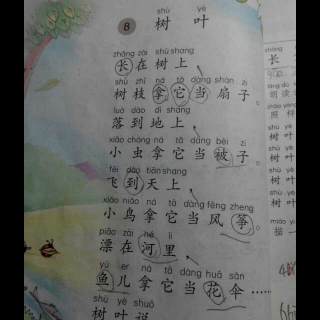 shù yè
8 树 叶
zhǎng zài shù shang
长 在 树 上
shù zhī ná tā dàng shàn zi
树 枝 拿 它 当 扇 子
luò dào dì shang
落 到 地 上
xiǎo chóng ná tā dàng bèi zi
小 虫 拿 它 当 被 子。
fēi dào tiān shang
飞 到 天 上
xiǎo niǎo ná tā dàng fēng zheng
小 鸟 拿 它 当 风 筝。
piāo zài hé lǐ
漂 在 河 里
yú er ná tā dàng huā sǎn
鱼 儿 拿 它 当 花 伞……
shù yè shuō
树 叶 说
zhǎng
长
朗 读
照 样
shù yè
树 叶
shù yè
树 叶
shù yè
树 叶
shù yè
树 叶
描 一